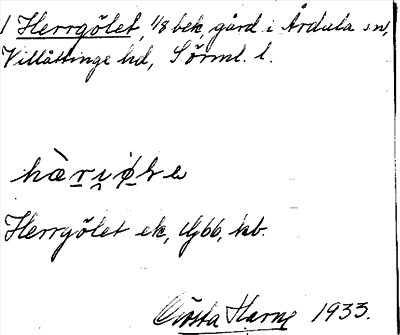 1 Herrgölet, 1/8 bek. gård i Årdala sn,
Villåttinge hd, Sörml. l.
Herrgölet ek,
Gösta Harne 1933.